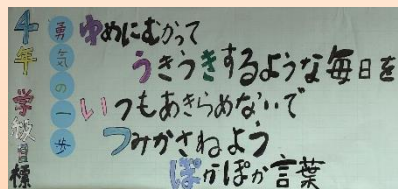 4年 学級目標
勇気の一歩
ゆめにむかって
うきうきするような毎日を
いつもあきらめないで
つみかさねよう
ぽかぽか言葉